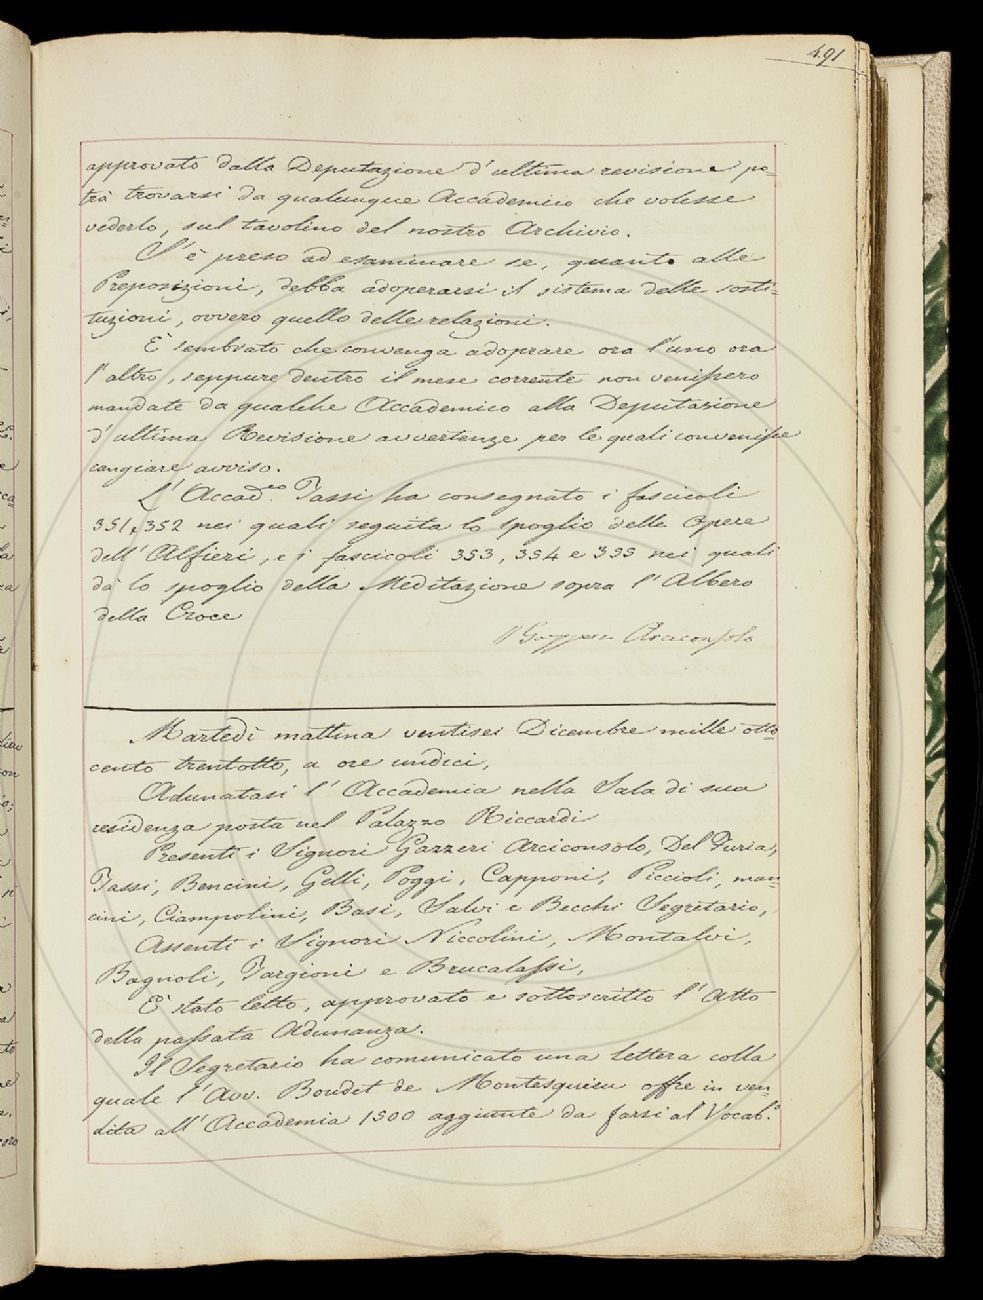 491
approvato dalla Deputazione d'ultima revisione po=
trà trovarsi da qualunque Accademico che volesse
vederlo, sul tavolino del nostro Archivio.
S'è preso ad esaminare se, quanto alle
Preposizioni, debba adoperarsi il sistema delle sosti=
tuzioni, ovvero quello delle relazioni.
È sembrato che convenga adoprare ora l'uno ora
l'altro, seppure dentro il mese corrente non venissero
mandate da qualche Accademico alla Deputazione
d'ultima Revisione avvertenze per le quali convenisse
cangiare avviso.
L'Accad.co Tassi ha consegnato i fascicoli
351, 352 nei quali seguita lo spoglio delle Opere
dell'Alfieri, e i fascicoli 353, 354 e 355 nei quali
dà lo spoglio della Meditazione sopra l'Albero
della Croce
Arciconsolo
Martedì mattina ventisei Dicembre mille otto=
cento trentotto, a ore undici,
Adunatasi l'Accademia nella Sala di sua
residenza posta nel Palazzo Riccardi
Presenti i Signori Gazzeri Arciconsolo, Del Furia,
Tassi, Bencini, Gelli, Poggi, Capponi, Piccioli, Man=
cini, Ciampolini, Basi, Salvi e Becchi Segretario,
Assenti i Signori Niccolini, Montalvi,
Bagnoli, Targioni e Brucalassi,
È stato letto, approvato e sottoscritto l'Atto
della passata Adunanza.
Il Segretario ha comunicato una lettera colla
quale l'Avv. Boudet de Montesquieu offre in ven=
dita all'Accademia 1500 aggiunte da farsi al Vocab.o